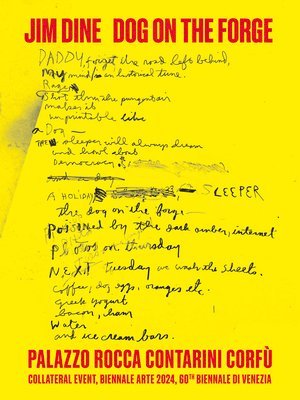 JIM DINE DOG ON THE FORGE
DADDY, forget the road left behind,
My mind is an historical tune.
Rage
Shot thru the pungent air
makes it
unprintable like
a Dog—
THE sleeper will always dream
and howl about
Democracy
and down
SLEEPER
A HOLIDAY
the dog on the forge—
POISONED by the dark amber, internet
Plows on thursday
NEXT tuesday we wash the sheets.
coffee, dog eggs, oranges etc.
greek yogurt
bacon, ham
Water
and ice cream bars.
PALAZZO ROCCA CONTARINI CORFÙ
COLLATERAL EVENT, BIENNALE ARTE 2024, 60TH BIENNALE DI VENEZIA